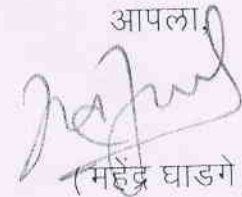 आपला,
(महेंद्र घाडगे